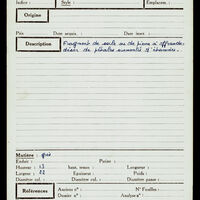 Indice : Style : Emplacem. :
Origine
Prix Date acquis. : Date insert. :
Description Fragment de socle ou de pierre à offrandes
décor de pétales surmonté d'
Matière : grès
Enduit : Patine :
Hauteur : 13 haut. tenon : Longueur :
Largeur : 22 Epaisseur : Poids :
Diamètre col. : Diamètre panse : Diamètre pied :
Références Ancien n° : N° Fouilles :
Dossier n° : Analyse n° :